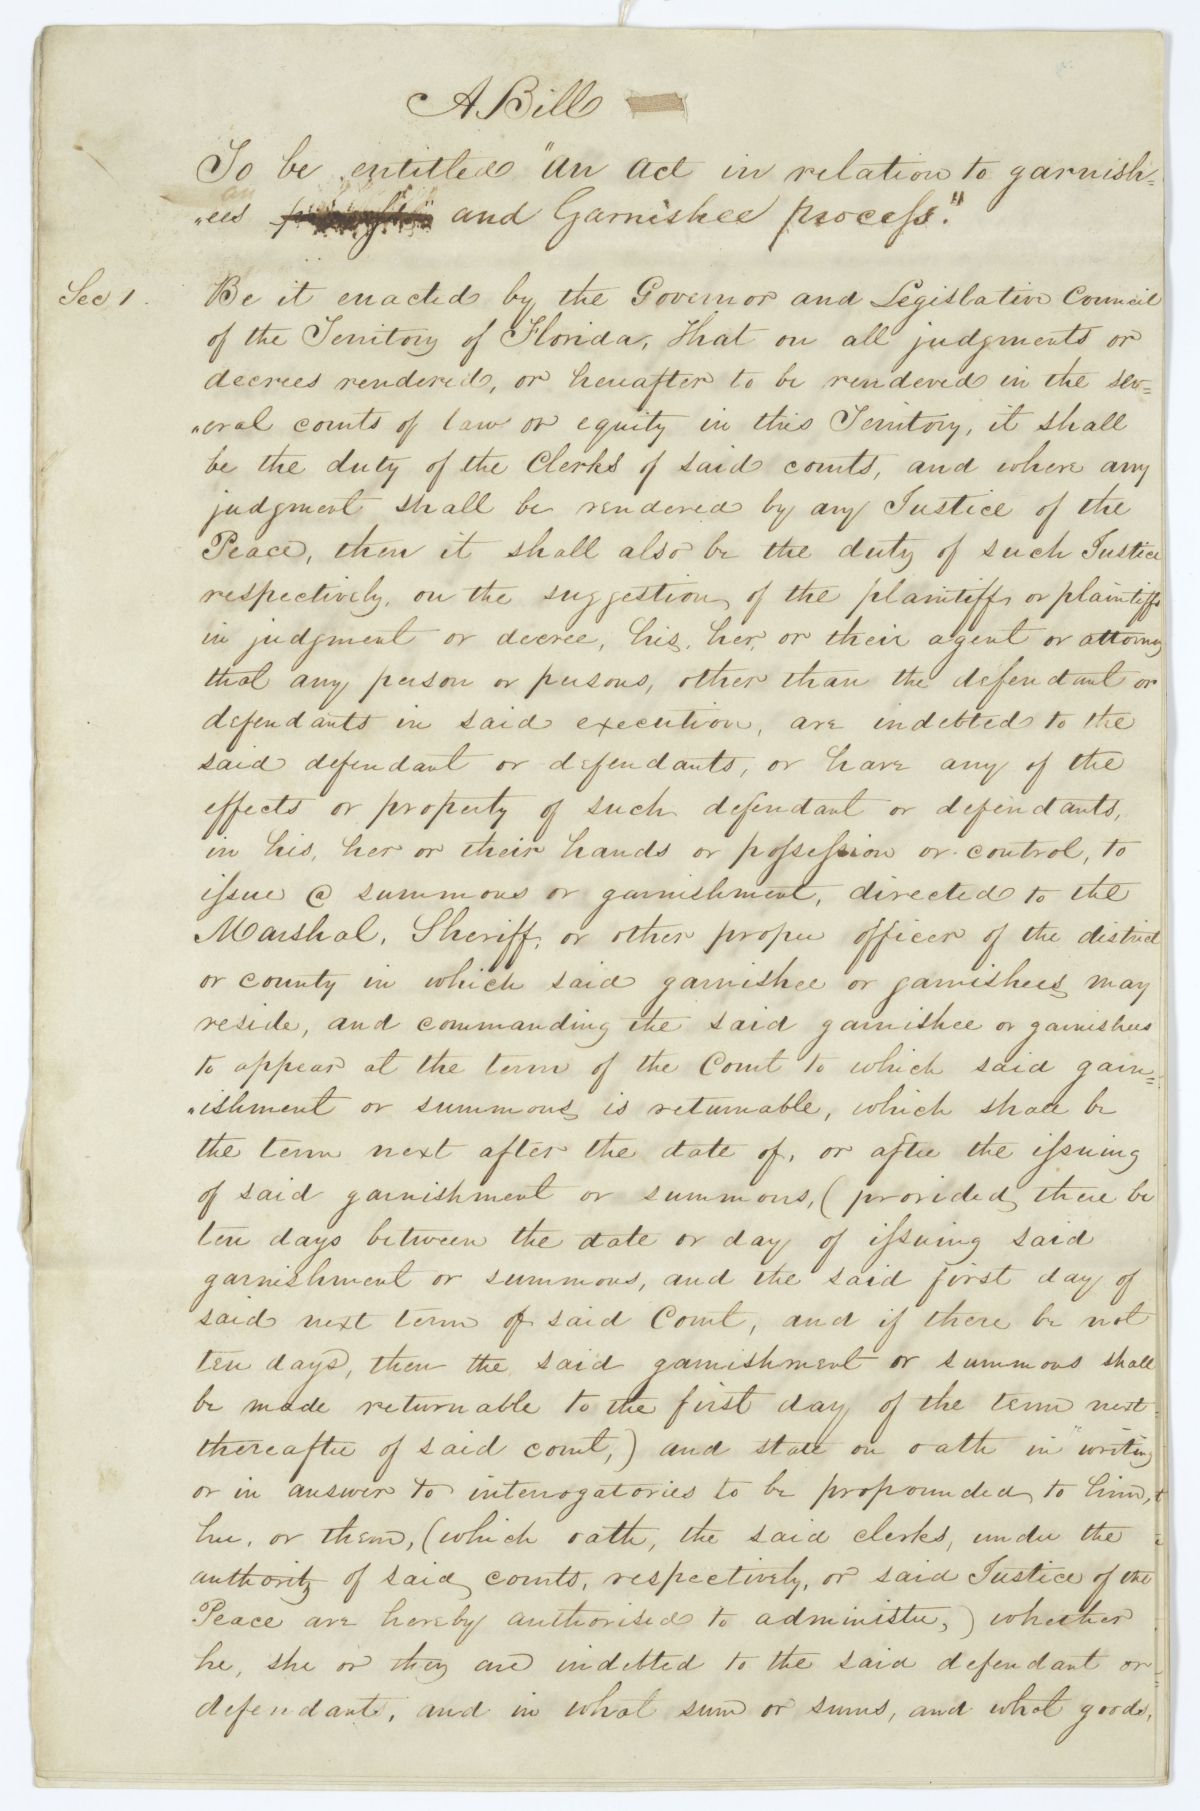 A Bill
To be entitled "An Act in relation to garnish=
"ees and Garnishee process."
Sec 1. Be it enacted by the Governor and Legislative Council
of the Territory of Florida, that on all judgments or
decrees rendered, or hereafter to be rendered in the sev=
"eral courts of law or equity in this Territory, it shall
be the duty of the Clerks of said courts, and where any
judgment shall be rendered by any Justice of the
Peace, then it shall also be the duty of such Justice
respectively, on the suggestion of the plaintiff or plaintiffs
in judgment or decree, his, her, or their agent or attorney
that any person or persons, other than the defendant or
defendants in said execution, are indebted to the
said defendant or defendants, or have any of the
effects or property of such defendant or defendants,
in his, her or their hands or possession or control, to
issue a summons or garnishment, directed to the
Marshal, Sheriff, or other proper officer of the district
or county in which said garnishee or garnishees may
reside, and commanding the said garnishee or garnishees
to appear at the term of the Court to which said garn=
"ishment or summons is returnable, which shall be
the term next after the date of, or after the issuing
of said garnishment or summons, (provided there be
ten days between the date or day of issuing said
garnishment or summons, and the said first day of
said next term of said Court, and if there be not
ten days, then the said garnishment or summons shall
be made returnable to the first day of the term next
thereafter of said court,) and state on oath in writing
or in answer to interrogatories to be propounded to him,
her, or them, (which oath, the said clerks, under the
authority of said courts, respectively, or said Justice of the
Peace are hereby authorised to administer,) whether
he, she or they are indebted to the said defendant or
defendants, and in what sum or sums, and what goods,